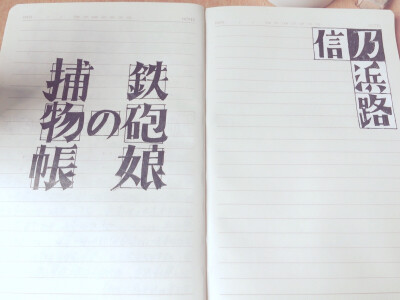 信乃
浜路
鉄砲娘
の
捕物帳